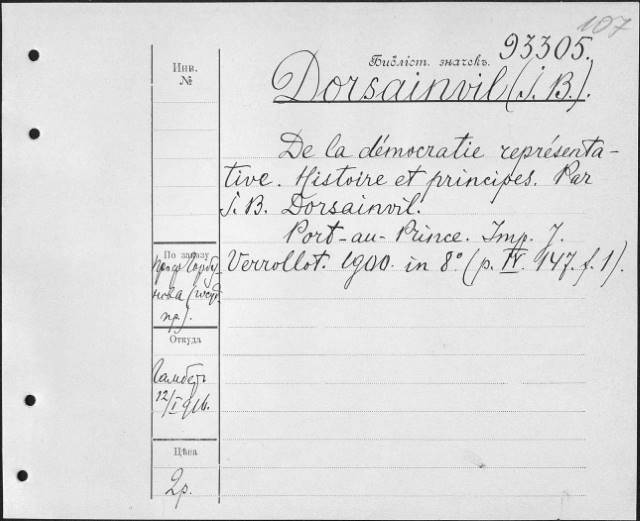 107
Библіот. значекъ. 93305.
Инв.
№
Dorsainvil (J. B.).
De la démocratie représenta-
tive. Histoire et principes. Par
J. B. Dorsainvil.
Port-au-Prince. Imp. J.
Verrollot. 1900. in 8° (p. IV. 147. f. 1).
По заказу
проф. Горбу-
нова
пр.).
Откуда
Гамбергъ
12/I 916.
Цѣна
2р.